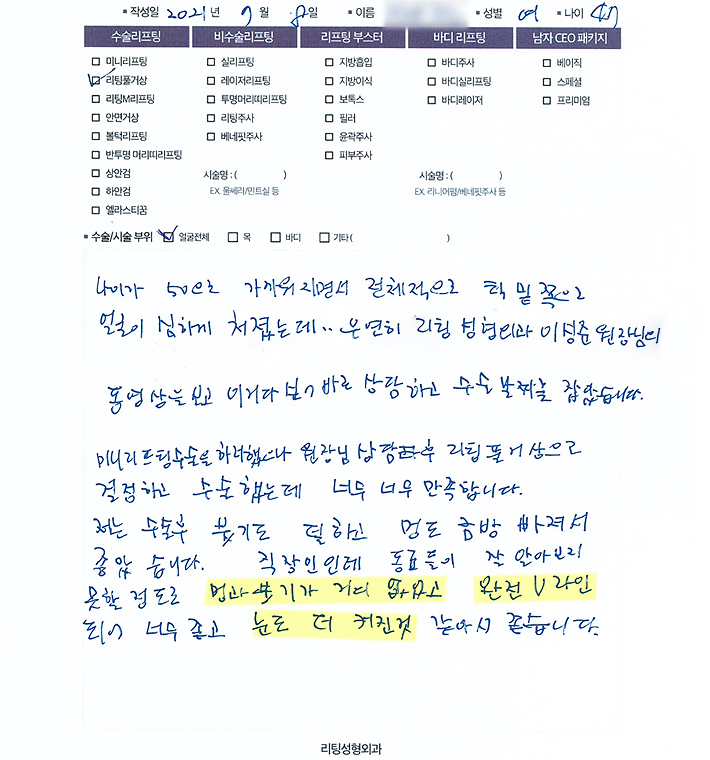 ▪ 작성일 2021년 9월 8일 ▪ 이름 ▪ 성별 여 ▪ 나이 47
수술리프팅 비수술리프팅 리프팅 부스터 바디 리프팅 남자 CEO 패키지
□ 미니리프팅 □ 실리프팅 □ 지방흡입 □ 바디주사 □ 베이직
☑ 리팅풀거상 □ 레이저리프팅 □ 지방이식 □ 바디실리프팅 □ 스페셜
□ 리팅M리프팅 □ 투명머리띠리프팅 □ 보톡스 □ 바디레이저 □ 프리미엄
□ 안면거상 □ 리팅주사 □ 필러
□ 볼턱리프팅 □ 베네핏주사 □ 윤곽주사
□ 반투명 머리띠리프팅 □ 피부주사
□ 상안검 시술명 : ( ) 시술명 : ( )
□ 하안검 EX. 울쎄라/민트실 등 EX. 리니어펌/베네핏주사 등
□ 엘라스티꿈
▪ 수술/시술 부위 ☑ 얼굴전체 □ 목 □ 바디 □ 기타 ( )
나이가 50으로 가까워지면서 전체적으로 턱 밑 쪽으로
얼굴이 심하게 처졌는데.. 우연히 리팅성형외과 이성준 원장님의
동영상을 보고 이거다 싶어 바로 상담하고 수술 날짜를 잡았습니다.
미니리프팅수술을 하려했으나 원장님 상담후 리팅풀거상으로
결정하고 수술했는데 너무 너무 만족합니다.
저는 수술후 붓기도 덜하고 멍도 금방 빠져서
좋았습니다. 직장인인데 동료들이 잘 알아보지
못할 정도로 멍과 붓기가 거의 없었고 완전 V라인
되어 너무 좋고 눈도 더 커진것 같아서 좋습니다.
리팅성형외과